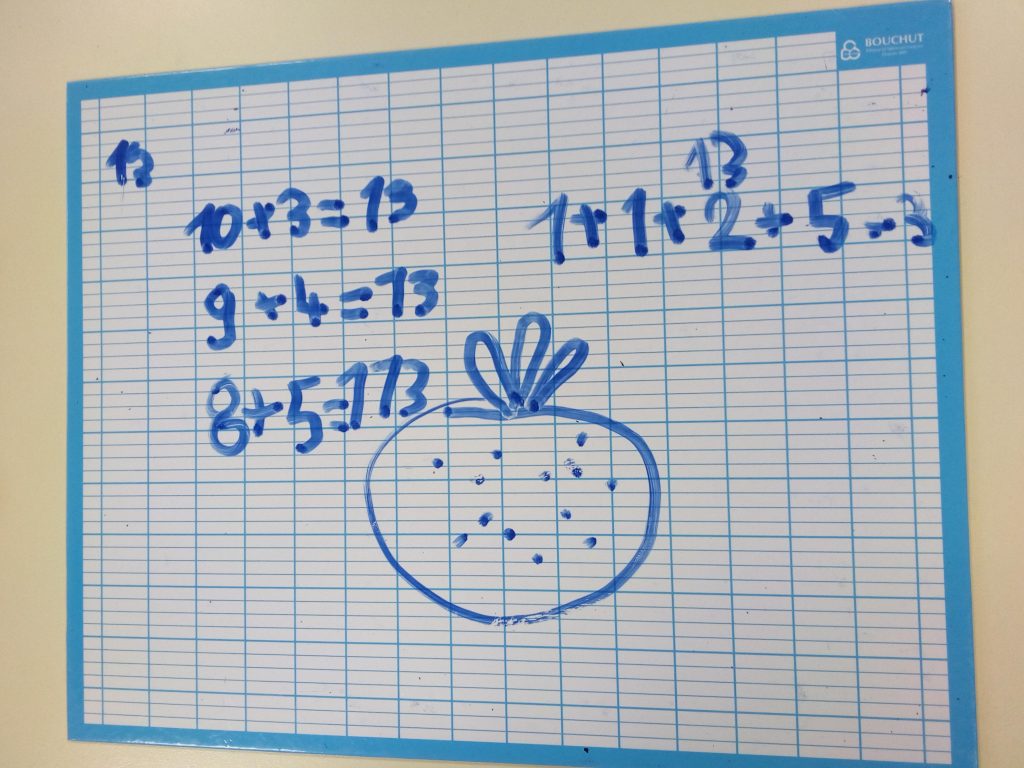 BOUCHUT
13
10+3=13
9+4=13
8+5=113
13
1+1+2+5